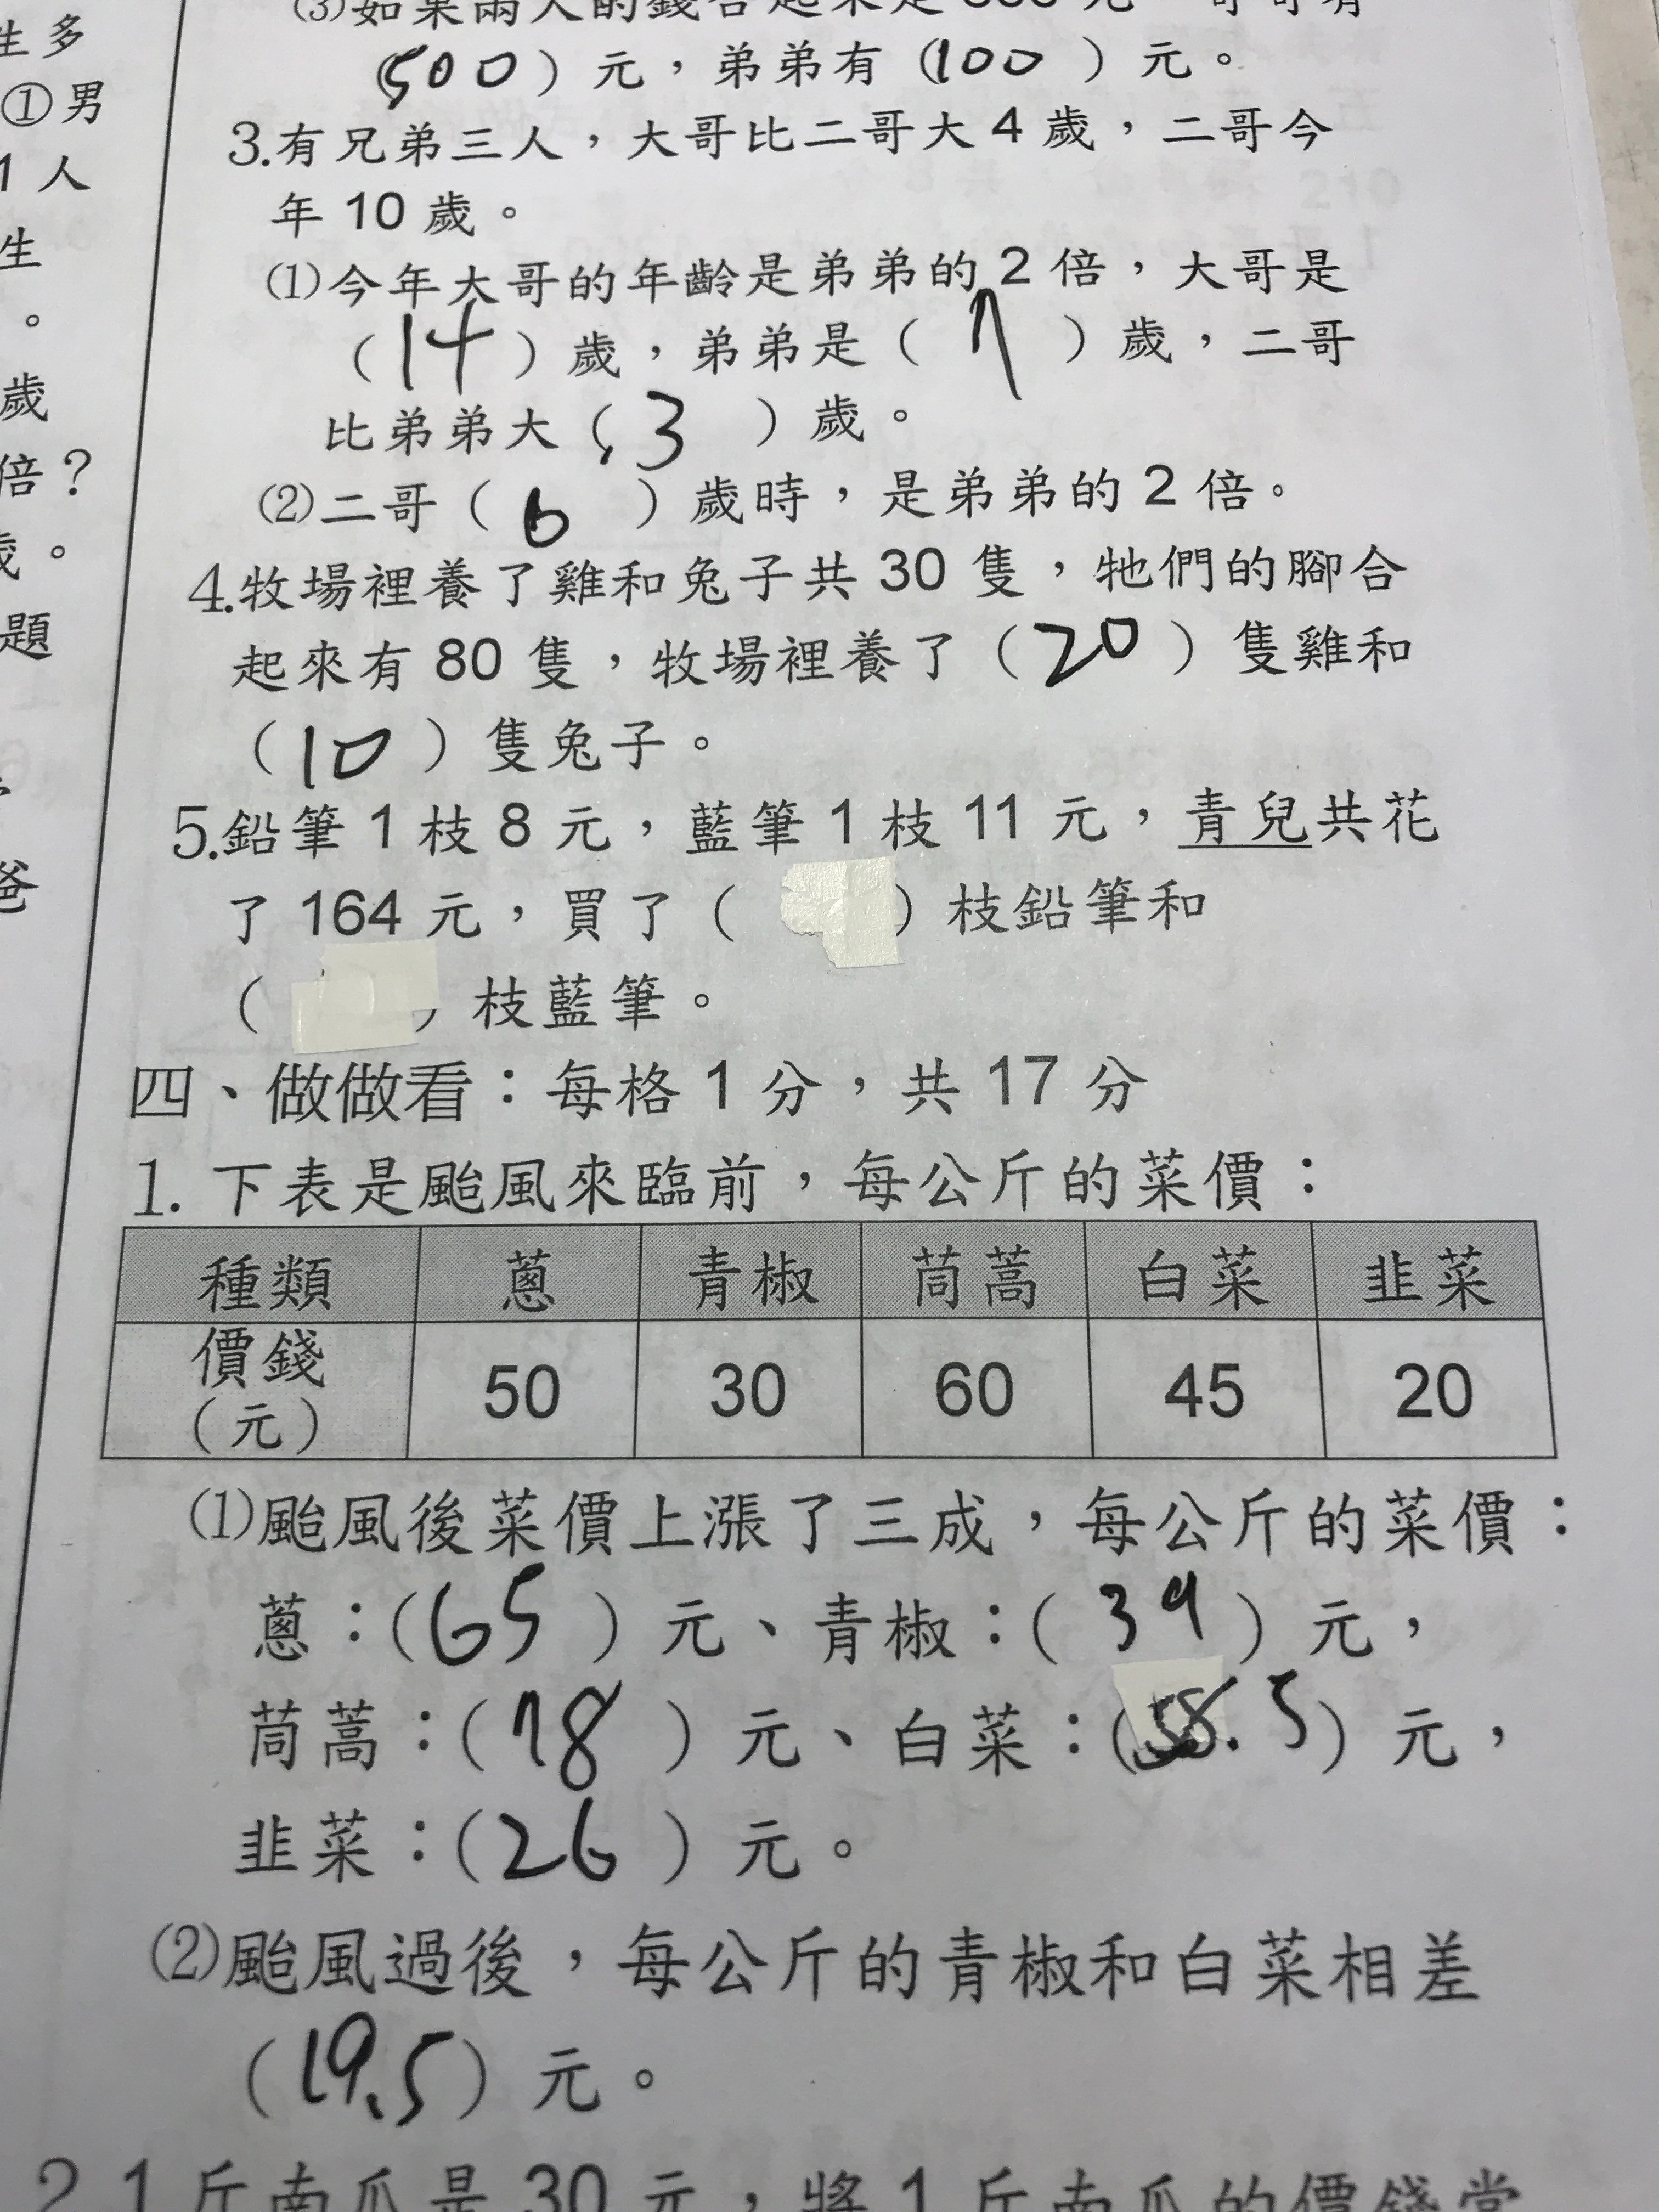 生多
①男
1人
生
。
歲
倍？
歲。
題
爸
(3)如果兩人的錢合起來是
(500)元，弟弟有(100)元。
3.有兄弟三人，大哥比二哥大4歲，二哥今
年10歲。
(1)今年大哥的年齡是弟弟的2倍，大哥是
(14)歲，弟弟是(7)歲，二哥
比弟弟大(3)歲。
(2)二哥(6)歲時，是弟弟的2倍。
4.牧場裡養了雞和兔子共30隻，牠們的腳合
起來有80隻，牧場裡養了(20)隻雞和
(10)隻兔子。
5.鉛筆1枝8元，藍筆1枝11元，青兒共花
了164元，買了(　)枝鉛筆和
(　)枝藍筆。
四、做做看：每格1分，共17分
1.下表是颱風來臨前，每公斤的菜價：
種類 蔥 青椒 茼蒿 白菜 韭菜
價錢
(元) 50 30 60 45 20
(1)颱風後菜價上漲了三成，每公斤的菜價：
蔥：(65)元、青椒：(39)元，
茼蒿：(78)元、白菜：(58.5)元，
韭菜：(26)元。
(2)颱風過後，每公斤的青椒和白菜相差
(19.5)元。
2.1斤南瓜是30元，將1斤南瓜的價錢當